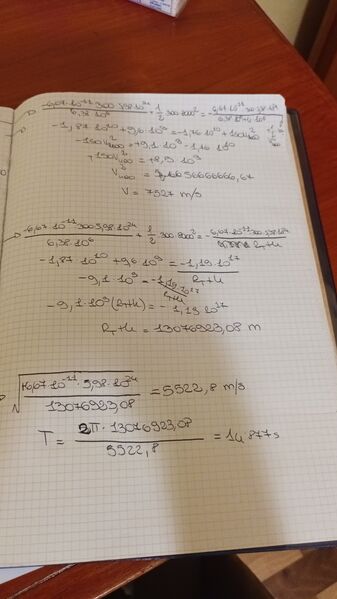 -6,67·10^-11·300·5,98·10^24 / 6,38·10^6 + 1/2 300·8000^2 = -6,67·10^-11·300·5,98·10^24 / 6,38·10^6+
-1,87·10^10 + 9,6·10^9 = -1,76·10^10 + 150V^2
+150V^2 = +8,5·10^9
V = 7527 m/s
-6,67·10^-11·300·5,98·10^24 / 6,38·10^6 + 1/2 300·8000^2 = -6,67·10^-11·300·5,98·10^24 / R_T+h
-1,87·10^10 + 9,6·10^9 = -1,19·10^17 / R_T+h
-9,1·10^9 = -1,19·10^17 / R_T+h
-9,1·10^9(R_T+h) = -1,19·10^17
R_T+h = 13076923,08 m
√(6,67·10^-11·5,98·10^24 / 13076923,08) = 5522,8 m/s
T = 2π·13076923,08 / 5522,8 = 14877s